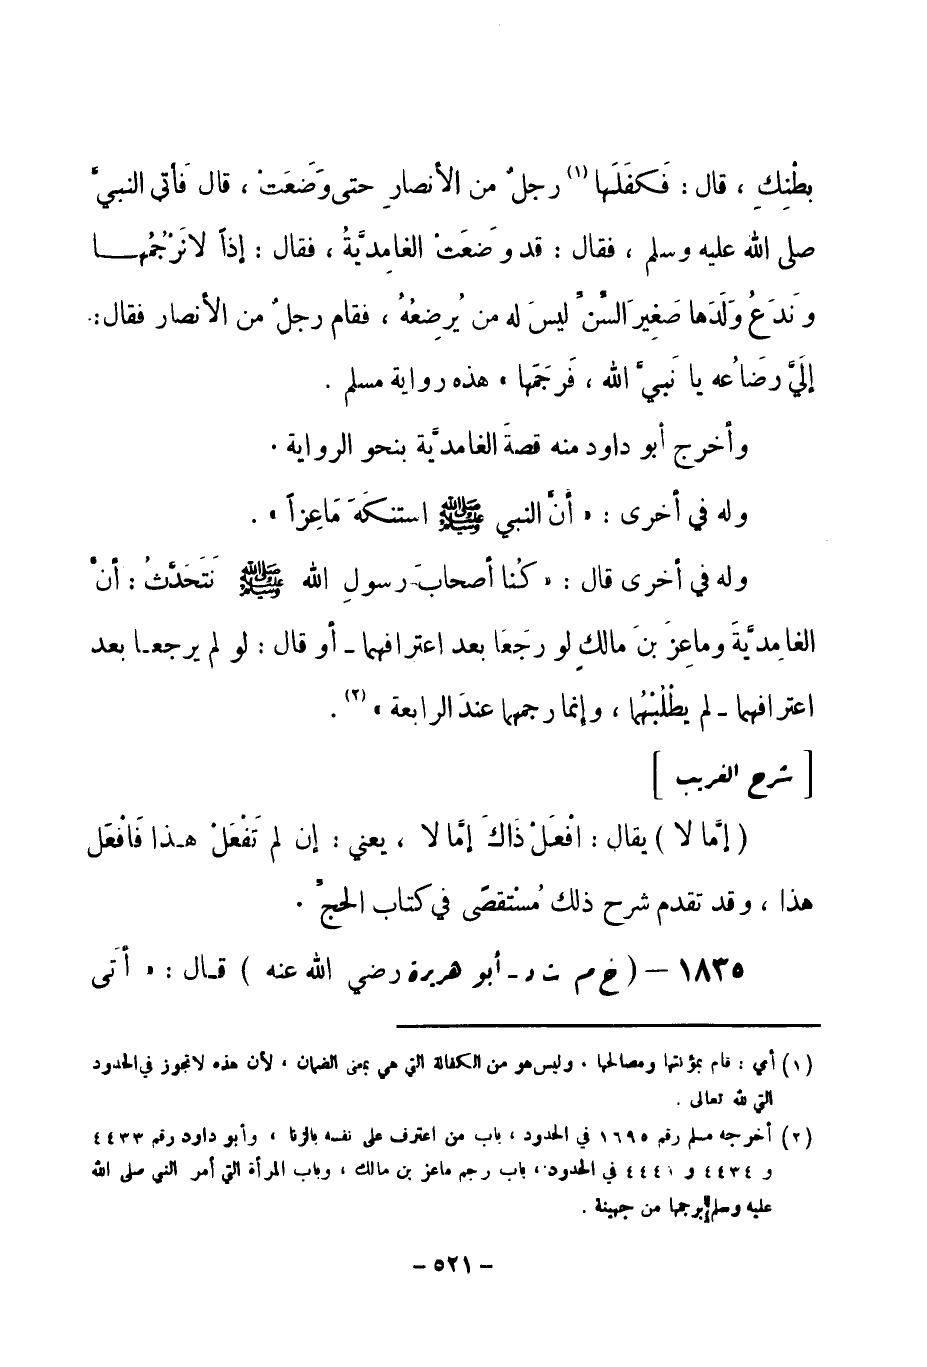 بطْنِكِ ، قال : فَكفَلَها (١) رجلٌ من الأنصارِ حتى وَضَعَتْ ، قال فَأتى النبيَّ
صلى الله عليه وسلم ، فقال : قد وَضَعَتْ الغامِديَّةُ ، فقال : إذاً لا نَرْجُمُهـا
وَنَدَعُ وَلَدَها صَغِيرَ السِّنِّ ليسَ له من يُرضِعُهُ ، فقام رجلٌ من الأنصار فقال :
إلَيَّ رضَاعُه يا نَبيَّ الله ، فَرجَمَها » هذه رواية مسلم .
وأخرج أبو داود منه قصةَ الغامديَّة بنحو الرواية .
وله في أخرى : « أنَّ النبي ﷺ استنكَهَ مَاعِزاً » .
وله في أخرى قال : « كُنا أصحابَ رسولِ الله ﷺ نَتَحَدَّثُ : أنَّ
الغامِديَّةَ وماعِزَ بنَ مالكٍ لو رجَعَا بعد اعترافهما ـ أو قال : لو لم يرجعـا بعد
اعترافهما ـ لم يطْلُبْهُما ، وإنما رجمهما عندَ الرابعة » (٢) .
[ شرح الغريب ]
( إمَّا لا ) يقال : افْعَلْ ذَاكَ إمَّا لا ، يعني : إن لم تَفْعَلْ هـذا فَافْعَل
هذا ، وقد تقدم شرح ذلك مُسْتقصًى في كتاب الحجِّ .
١٨٣٥ — ( خ م ت د ـ أبو هريرة رضي الله عنه ) قـال : « أتَى
(١) أي : قام بمؤنتها ومصالحها ، وليس هو من الكفالة التي هي بمعنى الضمان ، لأن هذه لا تجوز في الحدود
التي لله تعالى .
(٢) أخرجه مسلم رقم ١٦٩٥ في الحدود ، باب من اعترف على نفسه بالزنا ، وأبو داود رقم ٤٤٣٣
و ٤٤٣٤ و ٤٤٤١ في الحدود ، باب رجم ماعز بن مالك ، وباب المرأة التي أمر النبي صلى الله
عليه وسلم برجمها من جهينة .
- ٥٢١ -